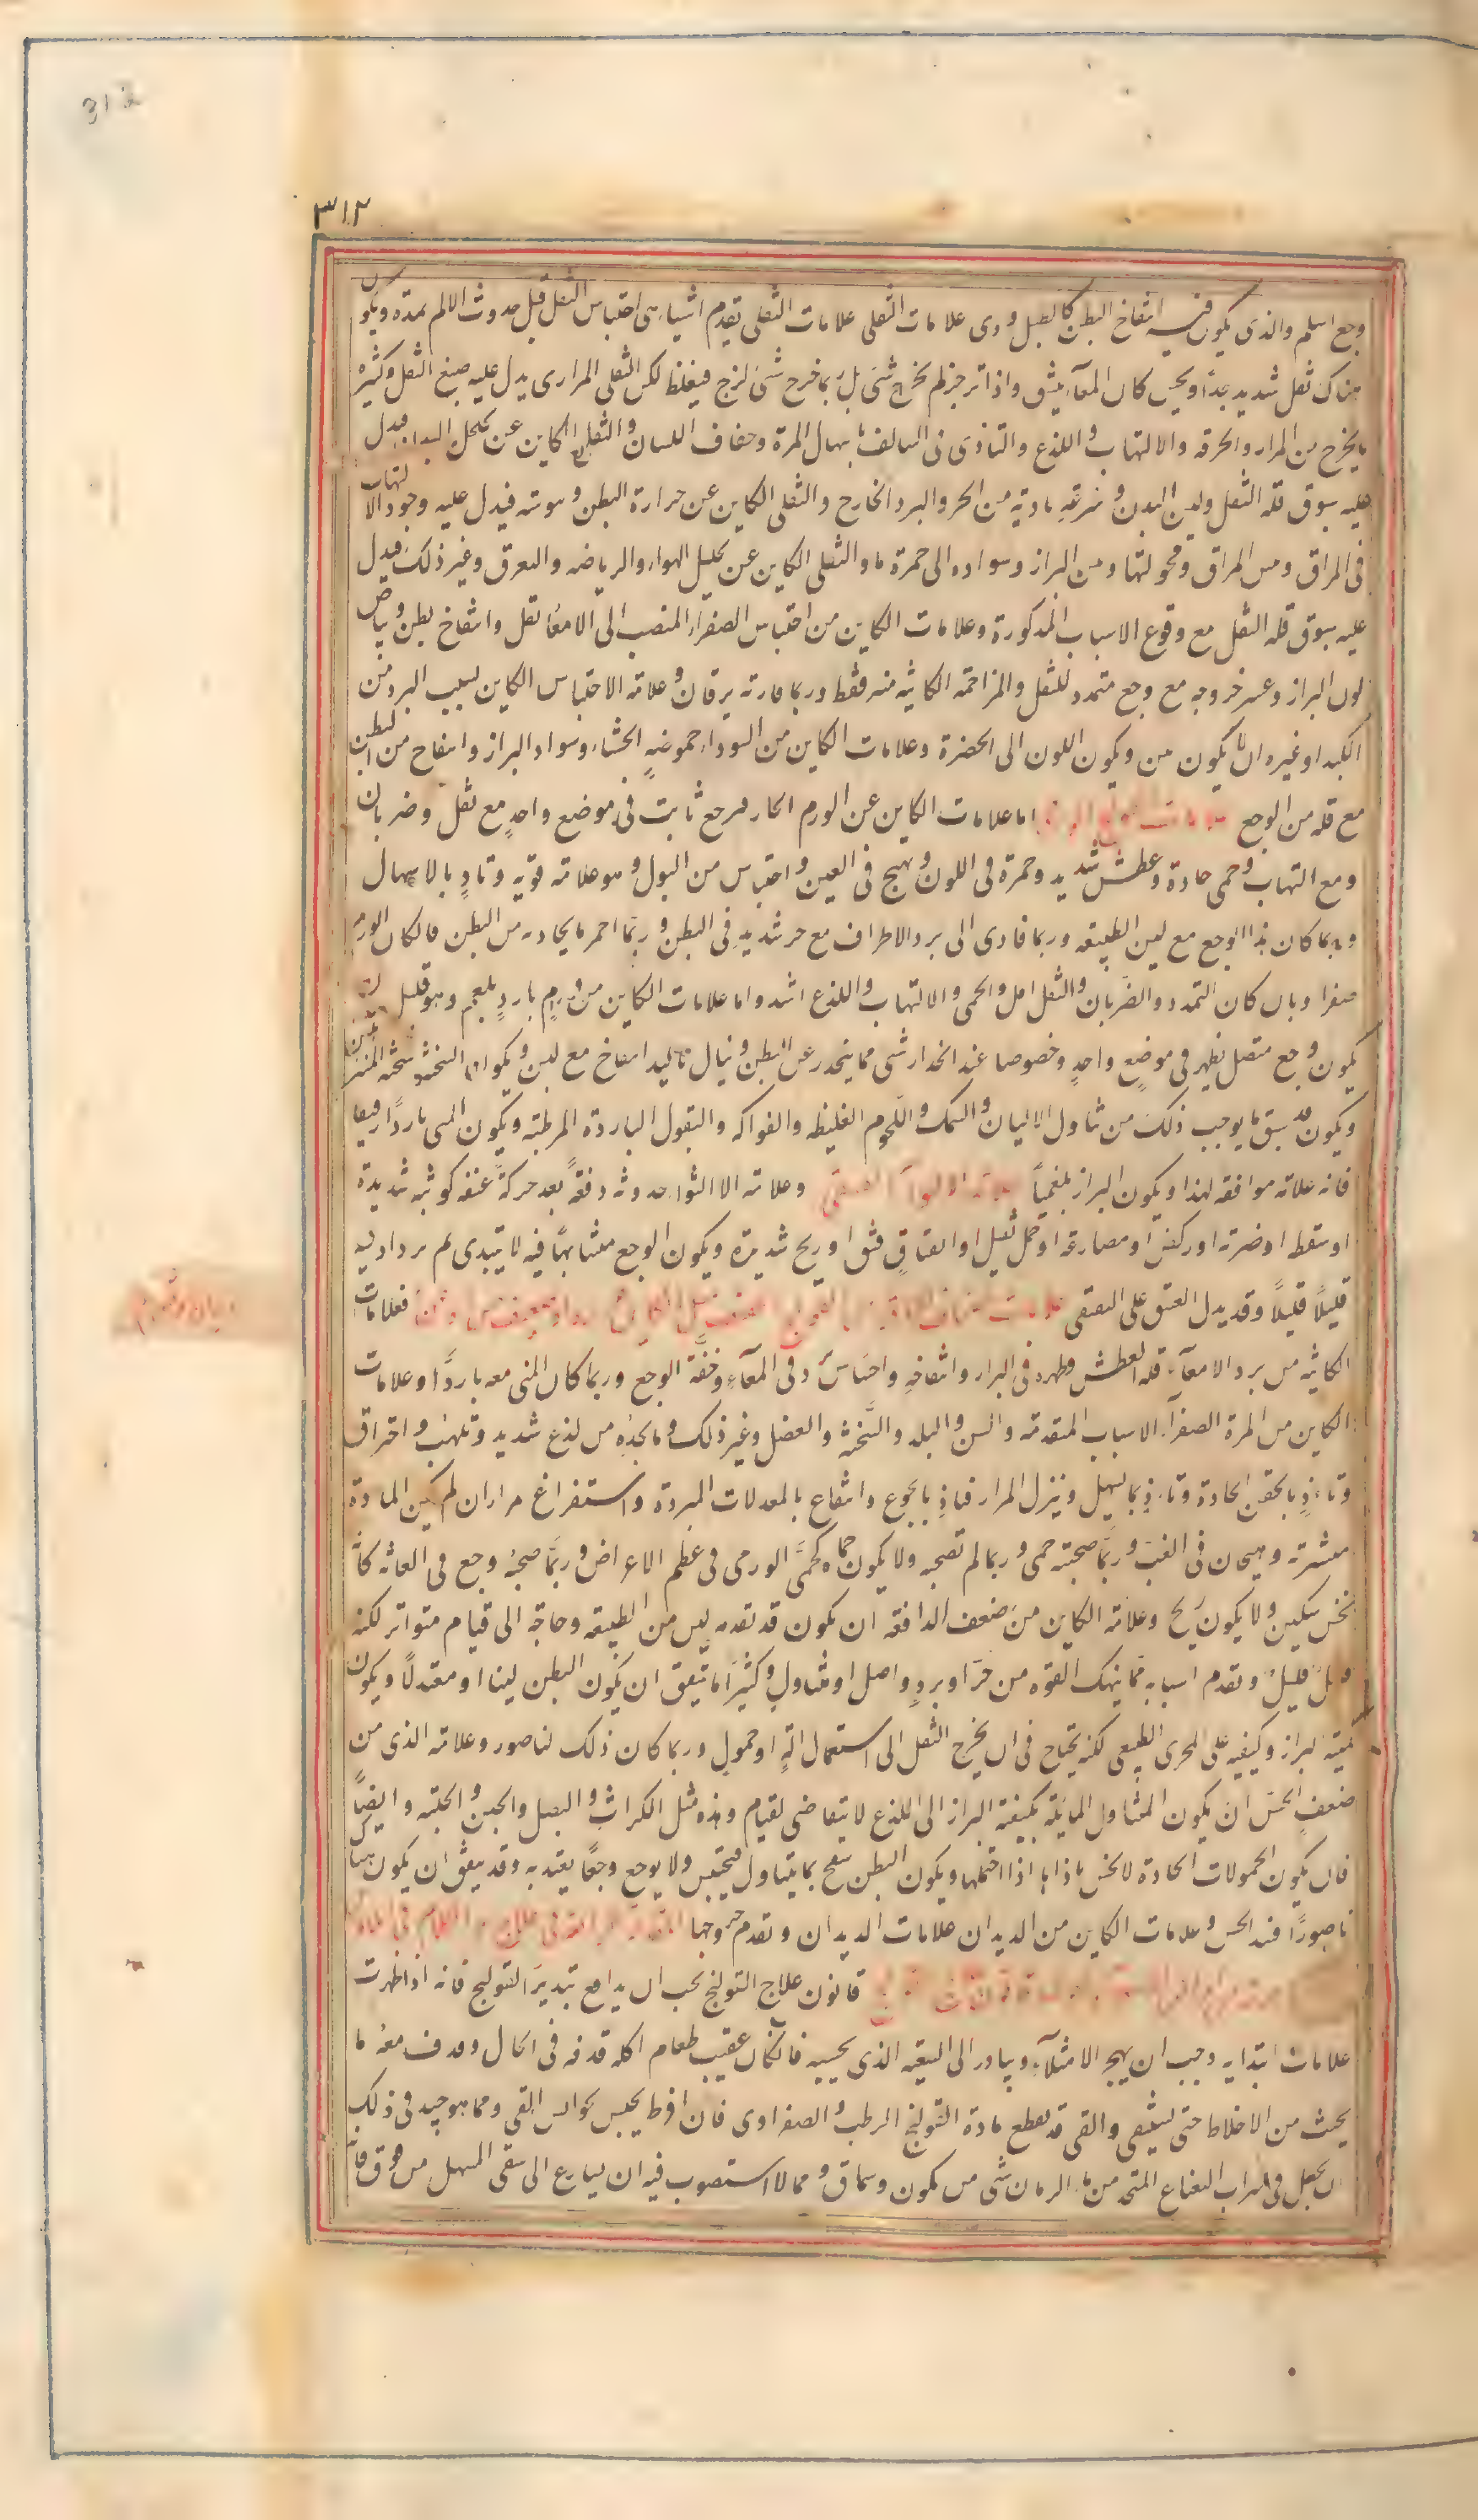 312
٣١٢
وجع اسلم والذى يكون فيه انتفاخ البطن كالطبل ردى علامات الثفلى علامات الثفلى تقدم اشياء هى احتباس الثفل قبل حدوث الالم بمدة ويكون
هناك ثقل شديد جدا ويحس كان المعآء ينشق واذا تزحر لم يخرج شئ بل ربما خرج شئ لزج فيغلظ لكن الثفلى المرارى يدل عليه صبغ الثفل وكثرة
ما يخرج من المرار والحرقه والالتهاب واللذع والتاذى فى السالف باسهال المرة وجفاف اللسان والثفلى الكاين عن تخلخل البدن فيدل
عليه سبوق قلة الثفل ولين البدن وسرعة تاديه من الحر والبرد الخارج والثفلى الكاين عن حرارة البطن ويبوسته فيدل عليه وجود الالتهاب
فى المراق ويبس المراق وقحولتها ويبس البراز وسواده الى حمرة ما والثفلى الكاين عن تحليل الهواء والرياضه والتعرق وغير ذلك فيدل
عليه سبوق قلة الثفل مع وقوع الاسباب المذكورة وعلامات الكاين من احتباس الصفراء المنصب الى الامعآ ثقل وانتفاخ بطن وبياض
لون البراز وعسر خروجه مع وجع متمدد للثفل والمزاحمة الكائنه منه فقط وربما قارنه يرقان وعلامة الاحتباس الكاين بسبب البرد من
الكبد او غيره ان لا يكون نتن ويكون اللون الى الخضرة وعلامات الكاين من السوداء حموضة الجشاء وسواد البراز وانتفاخ من البطن
مع قلة من الوجع اما علامات الكاين عن الورم الحار فوجع ثابت فى موضع واحد مع ثقل وضربان
ومع التهاب وحمى حادة وعطش شديد وحمرة فى اللون وتهيج فى العين واحتباس من البول وهو علامة قوية وتاذ بالاسهال
وربما كان هذا الوجع مع لين الطبيعه وربما تادى الى برد الاطراف مع حر شديد فى البطن وربما احمر ما يحاذيه من البطن فان كان الورم
صفراويا كان التمدد والضربان والثقل اقل والحمى والالتهاب واللذع اشد واما علامات الكاين من ورم بارد بلغمى وهو قليل
يكون وجع متصل يظهر فى موضع واحد وخصوصا عند انحدار شئ مما ينحدر عن البطن وينال باليد انتفاخ مع لين ويكون السحنة سحنة
ويكون قد سبق ما يوجب ذلك من تناول الالبان والسمك واللحوم الغليظه والفواكه والبقول الباردة المرطبة ويكون المنى باردا رقيقا
فانه علامة موافقه لهذا ويكون البراز بلغميا علامة الالتواء والفتق وعلامة الالتواء حدوثه دفعة بعد حركة عنيفه كوثبة شديدة
او سقطه او ضربة او ركض او مصارعة او حمل ثقيل او انفتاق فتق او ريح شديدة ويكون الوجع متشابها فيه لا يبتدى ثم يزداد فيه
قليلا قليلا وقد يدل الفتق على الفتقى فعلامات
الكاينه من برد الامعآء قلة العطش وطفوه فى البراز وانتفاخه واحساس برد فى المعآء وخفة الوجع وربما كان المنى معه باردا وعلامات
الكاين من المرة الصفرآء الاسباب المتقدمة والسن والبلد والسحنة والفصل وغير ذلك وما يجده من لذع شديد وتلهب واحتراق
وتاذ بالحقن الحادة وتاذ بما يسهل وينزل المرار وتاذ بالجوع وانتفاع بالمعدلات المبردة واستفراغ مرار ان لم يكن المادة
متشربة وهيجان فى الغب وربما صحبته حمى وربما لم تصحبه ولا يكون حماه كحمى الورمى فى عظم الاعراض وربما صحبه وجع فى العانة كانه
نخس سكين ولا يكون ريح وعلامة الكاين من ضعف الدافعه ان يكون قد تقدمه لين من الطبيعه وحاجة الى قيام متواتر لكنه
قليل قليل وتقدم اسباب مما ينهك القوه من حر او برد واصل او متناول وكثيرا ما يتفق ان يكون البطن لينا او معتدلا ويكون
كمية البراز وكيفيته على المجرى الطبيعى لكنه يحتاج فى ان يخرج الثفل الى استعمال آلة او حمول وربما كان ذلك لناصور وعلامة الذى من
ضعف الحس ان يكون المتناول المايلة بكيفية البراز الى اللذع لا يتقاضى لقيام وهذه مثل الكراث والبصل والجبن والحلتيت وايضا
فان يكون الحمولات الحادة لا تحس باذاها اذا احتملها ويكون البطن ينتفخ بما يتناول فيحتبس ولا يوجع وجعا يعتد به وقد يتفق ان يكون هناك
ناصورا فسد الحس وعلامات الكاين من الديدان علامات الديدان وتقدم خروجها
قانون علاج القولنج يجب ان يدافع بتدبير القولنج فانه اذا ظهرت
علامات ابتدايه وجب ان يهجر الامتلآء ويبادر الى التنقيه الذى يحسبه فان كان عقيب طعام اكله قذفه فى الحال وقذف معه ما
يحدث من الاخلاط حتى يتنقى والقى قد يقطع مادة القولنج الرطب والصفراوى فان افرط يحبس بحوابس القى ومما هو جيد فى ذلك
ان يجعل فى شراب النعناع المتخذ من ماء الرمان شئ من كمون وسماق ومما لا استصوب فيه ان يسارع الى سقى المسهل من فوق فانه